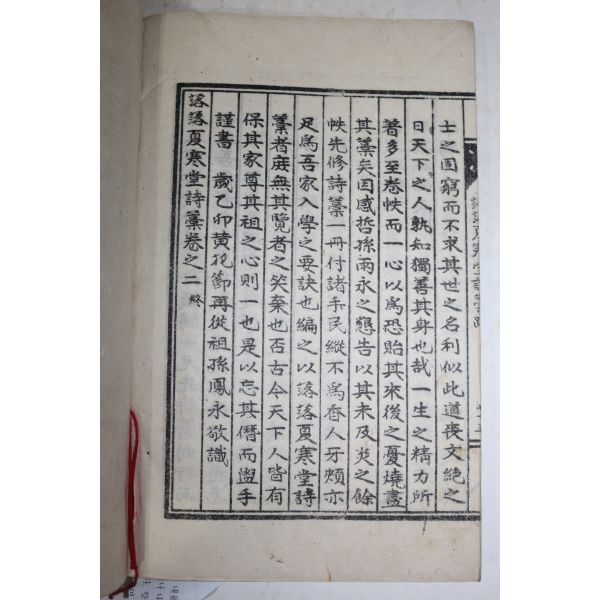 士之固窮而不求其世之名利似此道喪文絶之
日天下之人孰知獨善其身也哉一生之精力所
著多至卷帙而一心以爲恐貽其來後之憂燒盡
其藁矣因感哲孫雨永之懇告以其未及炎之餘
帙先修詩藁一冊付諸手民縱不爲香人牙頰亦
足爲吾家入學之要訣也編之以落落夏寒堂詩
藁者庶無其覽者之笑棄也否古今天下人皆有
保其家尊其祖之心則一也是以忘其僭而盥手
謹書 歲乙卯黄花節再從祖孫鳳永敬識
落落夏寒堂詩藁卷之二 終